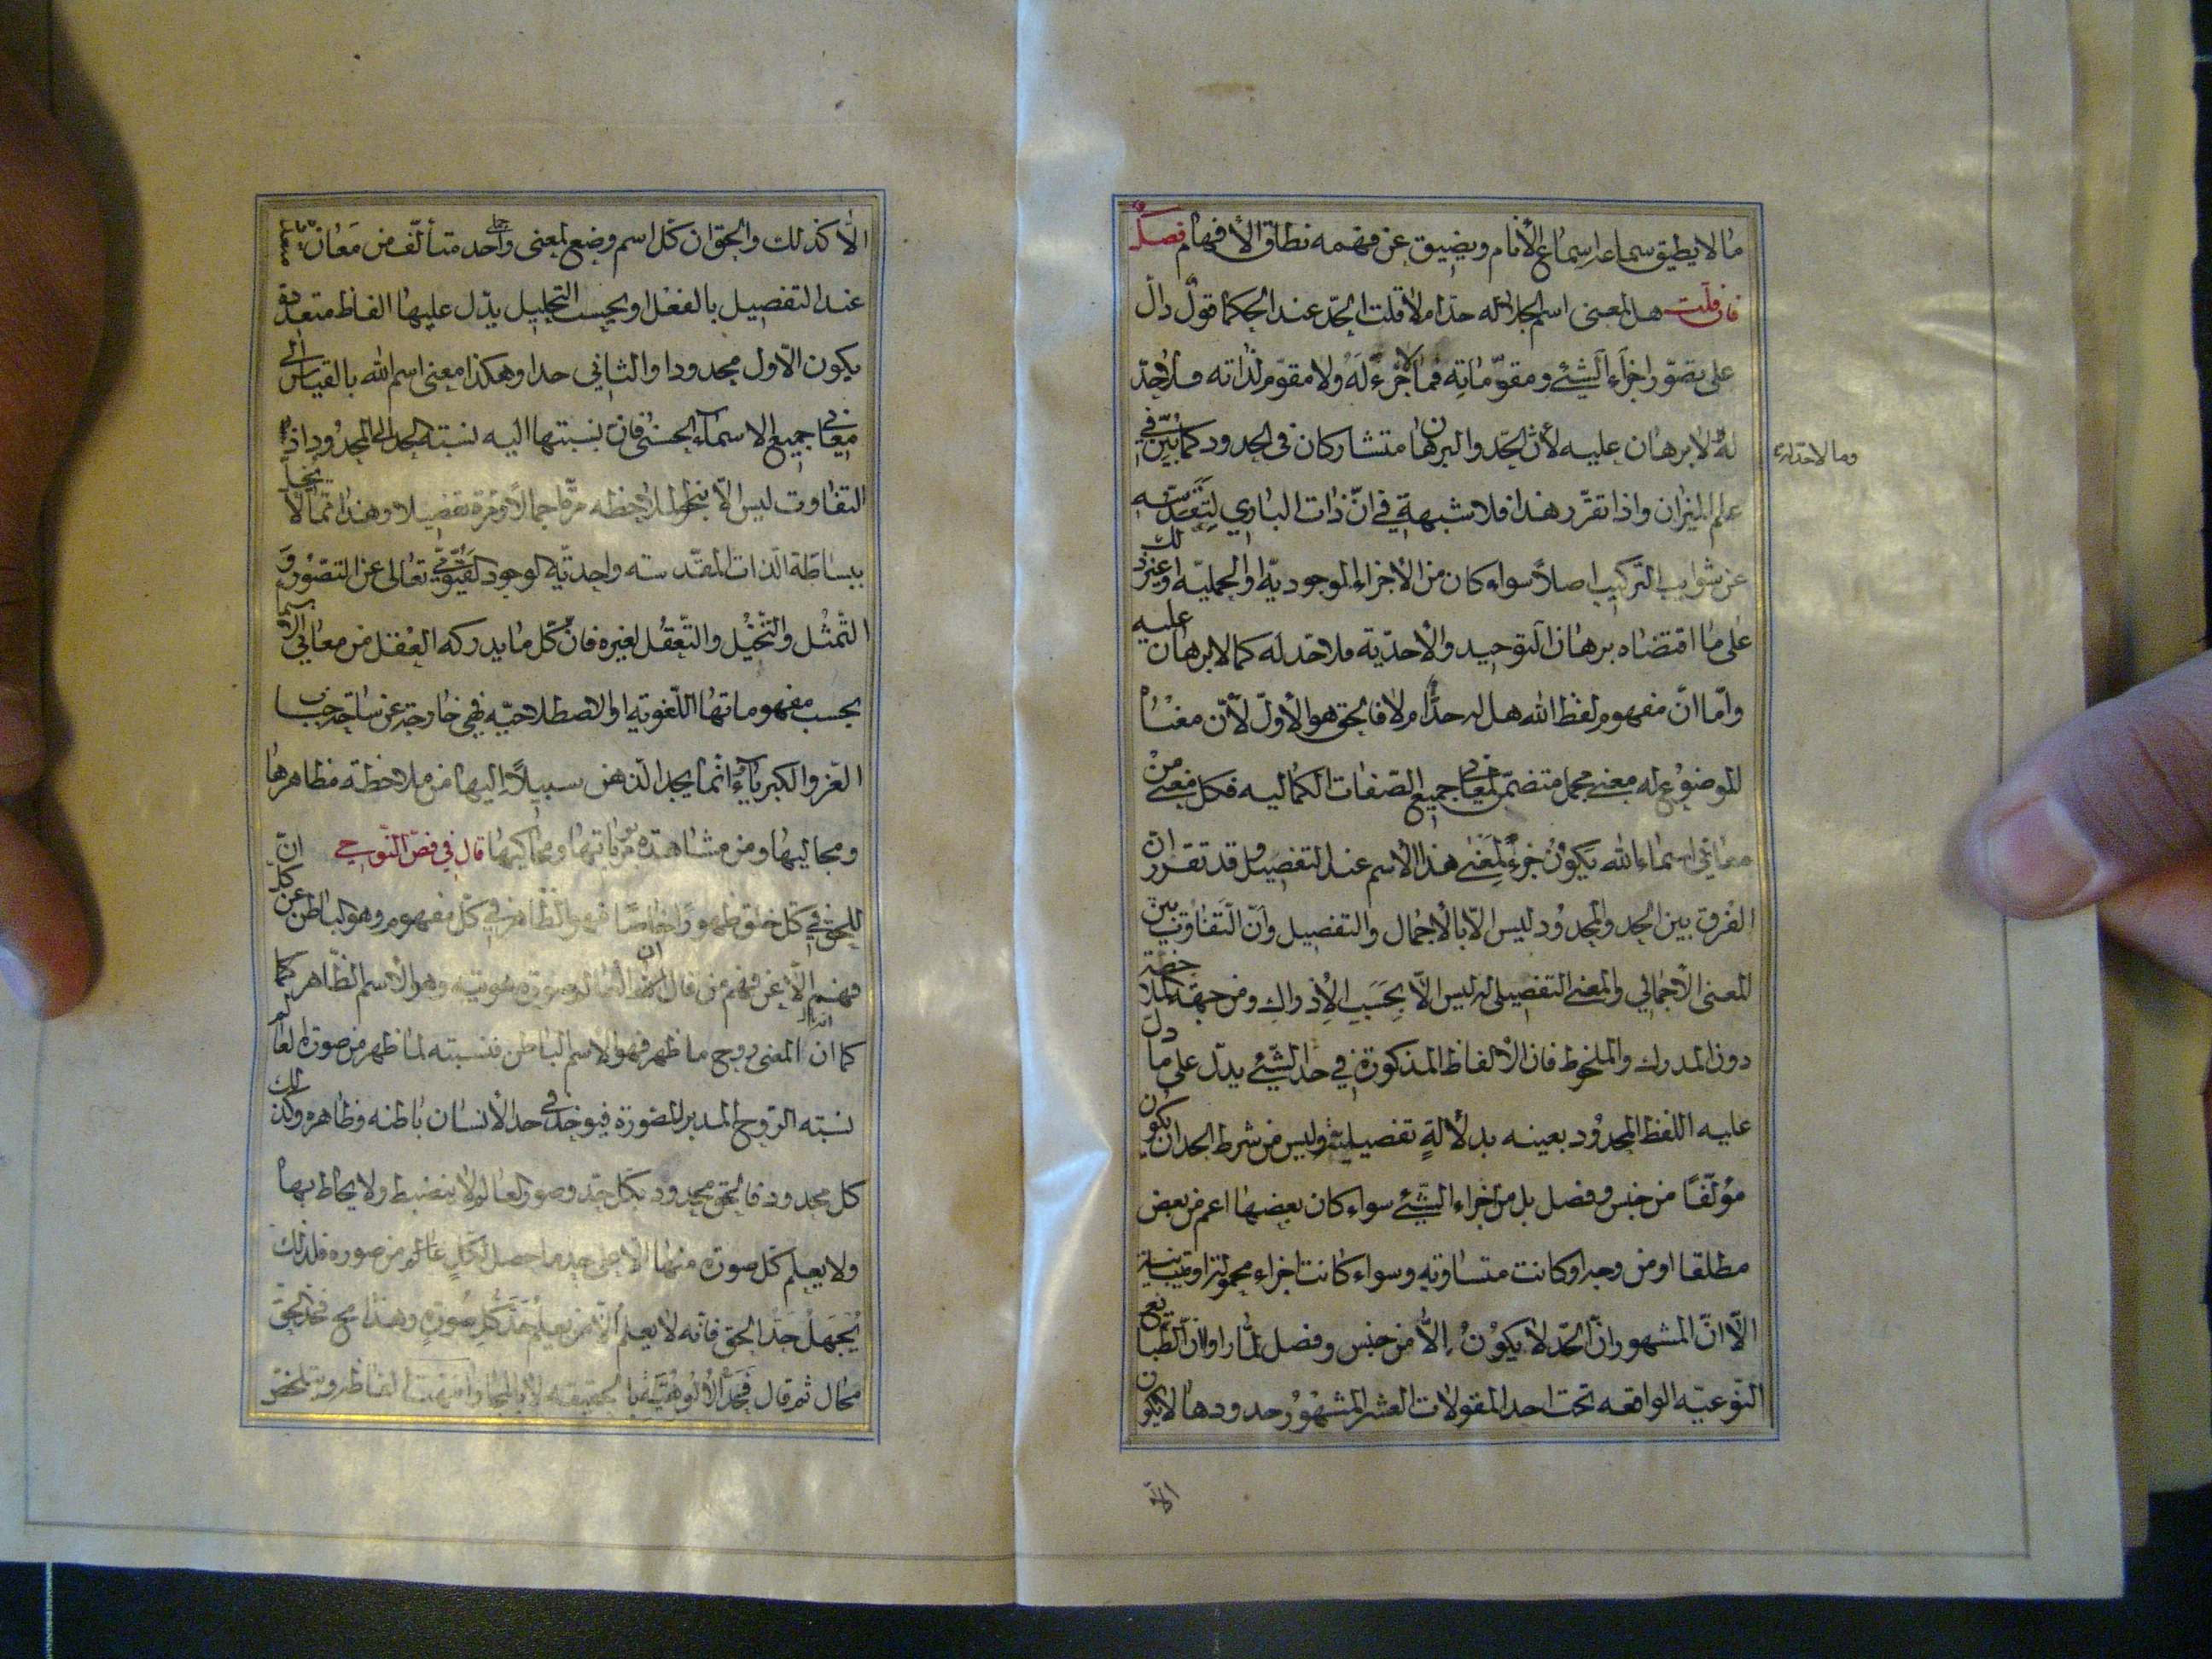 ما لا يطيق سماعه اسماع الأنام ويضيق عن فهمه نطاق الأفهام فصل
فان قلت هل لمعنى اسم الجلالة له حد ام لا قلت الحد عند الحكما قول دالّ
على تصوّر اجزاء الشيئ ومقوّماته فما لا جزء له ولا مقوم لذاته فلا حدّ
له لا برهان عليه لأن الحد والبرهان متشاركان في الحدود كما بيّن في
وما لا حد له
علم الميزان واذا تقرّر هذا فلا شبهة في انّ ذات الباري لتقدّسه
عن شوايب التركيب اصلاً سواء كان من الأجزاء الوجوديّة او الحمليّه او غير ذلك
على ما اقتضاه برهان التوحيد والأحدّية فلا حد له كما لا برهان عليه
وامّا انّ مفهوم لفظ الله هل له حدّ ام لا فالحق هو الأول لأنّ معناه
الموضوع له معنى مجمل متضمّن لمعاني جميع الصّفات الكماليه فكل معنى من
معاني اسماء الله يكون جزء لمعنى هذا الأسم عند التفصيل وقد تقرر ان
الفرق بين الحد والمحدود ليس الّا بالأجمال والتفصيل وانّ التّفاوت بين
المعنى الأجمالي والمعنى التفصيلى له ليس الّا بحسب الإدراك ومن جهة الملاحظة
دون المدرك والملحوظ فان الألفاظ المذكورة في حد الشّيئ يدّل على ما دل
عليه اللفظ المحدود بعينه بدلالةٍ تفصيلية وليس من شرط الحد ان يكون
مؤلّفاً من جنس وفصل بل من اجزاء الشّيئ سواء كان بعضها اعم من بعض
مطلقا او من وجه او كانت متساويه وسواء كانت اجزاء محمولة او متباينة
الّا انّ المشهور انّ الحّد لا يكون الّا من جنس وفصل لمّا راوا انّ الطّبايع
النّوعيّه الواقعه تحت احد المقولات العشر المشهور حدودها لا يكون
الّا
الّا كذلك والحق ان كل اسم وضع لمعنى واحد جملى متألّف من معان
عند التفصيل بالفعل او بحسب التحليل يدّل عليها الفاظ متعددة
يكون الاّول محدودا والثاني حدا وهكذا معنى اسم الله بالقياس الى
معاني جميع الاسماء الحسنى فان نسبتها اليه نسبته الحد الى المحدود اذ
التفاوت ليس الّا بنحو الملاحظه مرّة اجمالاً ومرة تفصيلا وهذا ممّا لا يخل
ببساطة الذات المقدسته واحديّة الوجود القيّومي تعالى عن التصّور و
التّمثل والتخّيل والتّعقل لغيره فانّ كل ما يدركه العقل من معاني الأسماء
بحسب مفهوماتها اللّغوية او الاصطلاحيّه فهي خارجة عن ساحة جناب
العّز والكبرياء انّما يجد الّذهن سبيلاً اليها من ملاحظه مظاهرها
ومجاليها ومن مشاهدة مرباتها ومحاكيها قال في فصّ النّوحي انّ
للحق في كل خلق ظهورًا خاصًا فهو الظاهر في كل مفهوم وهو الباطن عن كل
فهم الّا عن فهم من قال ان العالم صورته وهويته وهو الاسم الظّاهر كما
كما ان المعنى روح ما ظهر فهو الاسم الباطن فنسبته لما ظهر من صورة العالم
نسبته الروح المدبر للصّورة فيوخذ في حد الأنسان باطنه وظاهره وكذلك
كل محدود فالحق محدود بكل حّد وصور العالم لا ينضبط ولا يحاط بها
ولا يعلم كل صورة منها الّا على حد ما حصل لكل عالم من صوره فلذلك
يُجهل حدّ الحق فانّه لا يعلم الّا من يعلم حدّ كل صورةٍ وهذا مح فحد الحق
محال ثم قال فحد الألوهيّة بالحقيقه لا بالمجاز انتهت الفاظه وتلخص